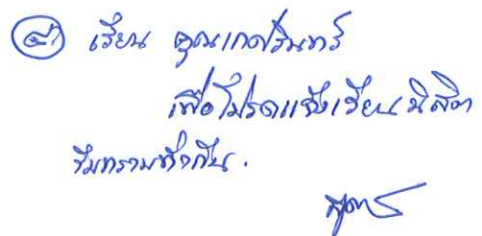 ๔) เรียน คุณเกศรินทร์
เพื่อโปรดแจ้งเวียนนิสิต
รับทราบทั่วกัน.